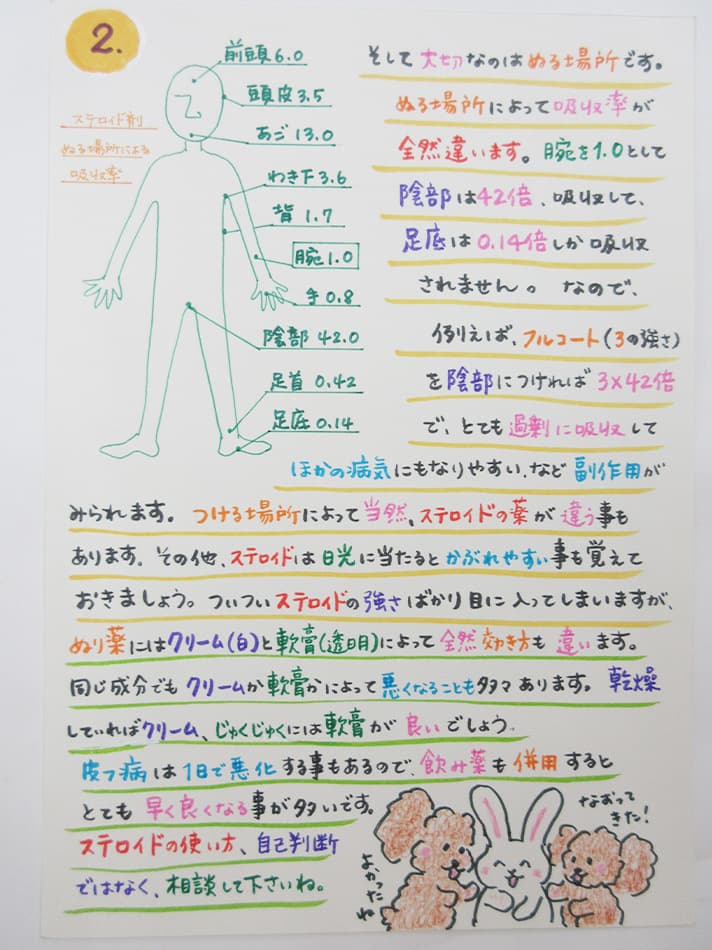 2.
ステロイド剤
ぬる場所による
吸収率
前頭 6.0
頭皮 3.5
あご 13.0
わき下 3.6
背 1.7
腕 1.0
手 0.8
陰部 42.0
足首 0.42
足底 0.14
そして大切なのはぬる場所です。
ぬる場所によって吸収率が
全然違います。腕を1.0として
陰部は42倍、吸収して、
足底は0.14倍しか吸収
されません。なので、
例えば、フルコート(3の強さ)
を陰部につければ3×42倍
で、とても過剰に吸収して
ほかの病気にもなりやすい、など副作用が
みられます。つける場所によって当然、ステロイドの薬が違う事も
あります。その他、ステロイドは日光に当たるとかぶれやすい事も覚えて
おきましょう。ついついステロイドの強さばかり目に入ってしまいますが、
ぬり薬にはクリーム(白)と軟膏(透明)によって全然効き方も違います。
同じ成分でもクリームか軟膏かによって悪くなることも多々あります。乾燥
していればクリーム、じゅくじゅくには軟膏が良いでしょう。
皮フ病は1日で悪化する事もあるので、飲み薬も併用すると
とても早く良くなる事が多いです。
ステロイドの使い方、自己判断
ではなく、相談して下さいね。
よかったね
なおってきた!